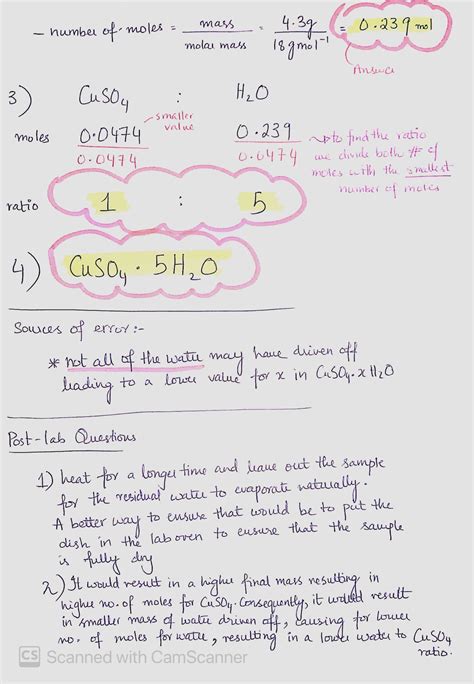 - number of moles = mass / molar mass = 4.3g / 18gmol⁻¹ = 0.239 mol
Answer
3) CuSO₄ : H₂O
moles 0.0474 / 0.0474 smaller value 0.239 / 0.0474 → to find the ratio
we divide both # of
moles with the smallest
number of moles
ratio 1 : 5
4) CuSO₄ · 5H₂O
Sources of error:-
* not all of the water may have driven off
leading to a lower value for x in CuSO₄·xH₂O
Post-lab Questions
1) heat for a longer time and leave out the sample
for the residual water to evaporate naturally.
A better way to ensure that would be to put the
dish in the lab oven to ensure that the sample
is fully dry
2) It would result in a higher final mass resulting in
higher no. of moles for CuSO₄. Consequently, it would result
in smaller mass of water driven off, causing for lower
no. of moles for water, resulting in a lower water to CuSO₄
ratio.
CS Scanned with CamScanner